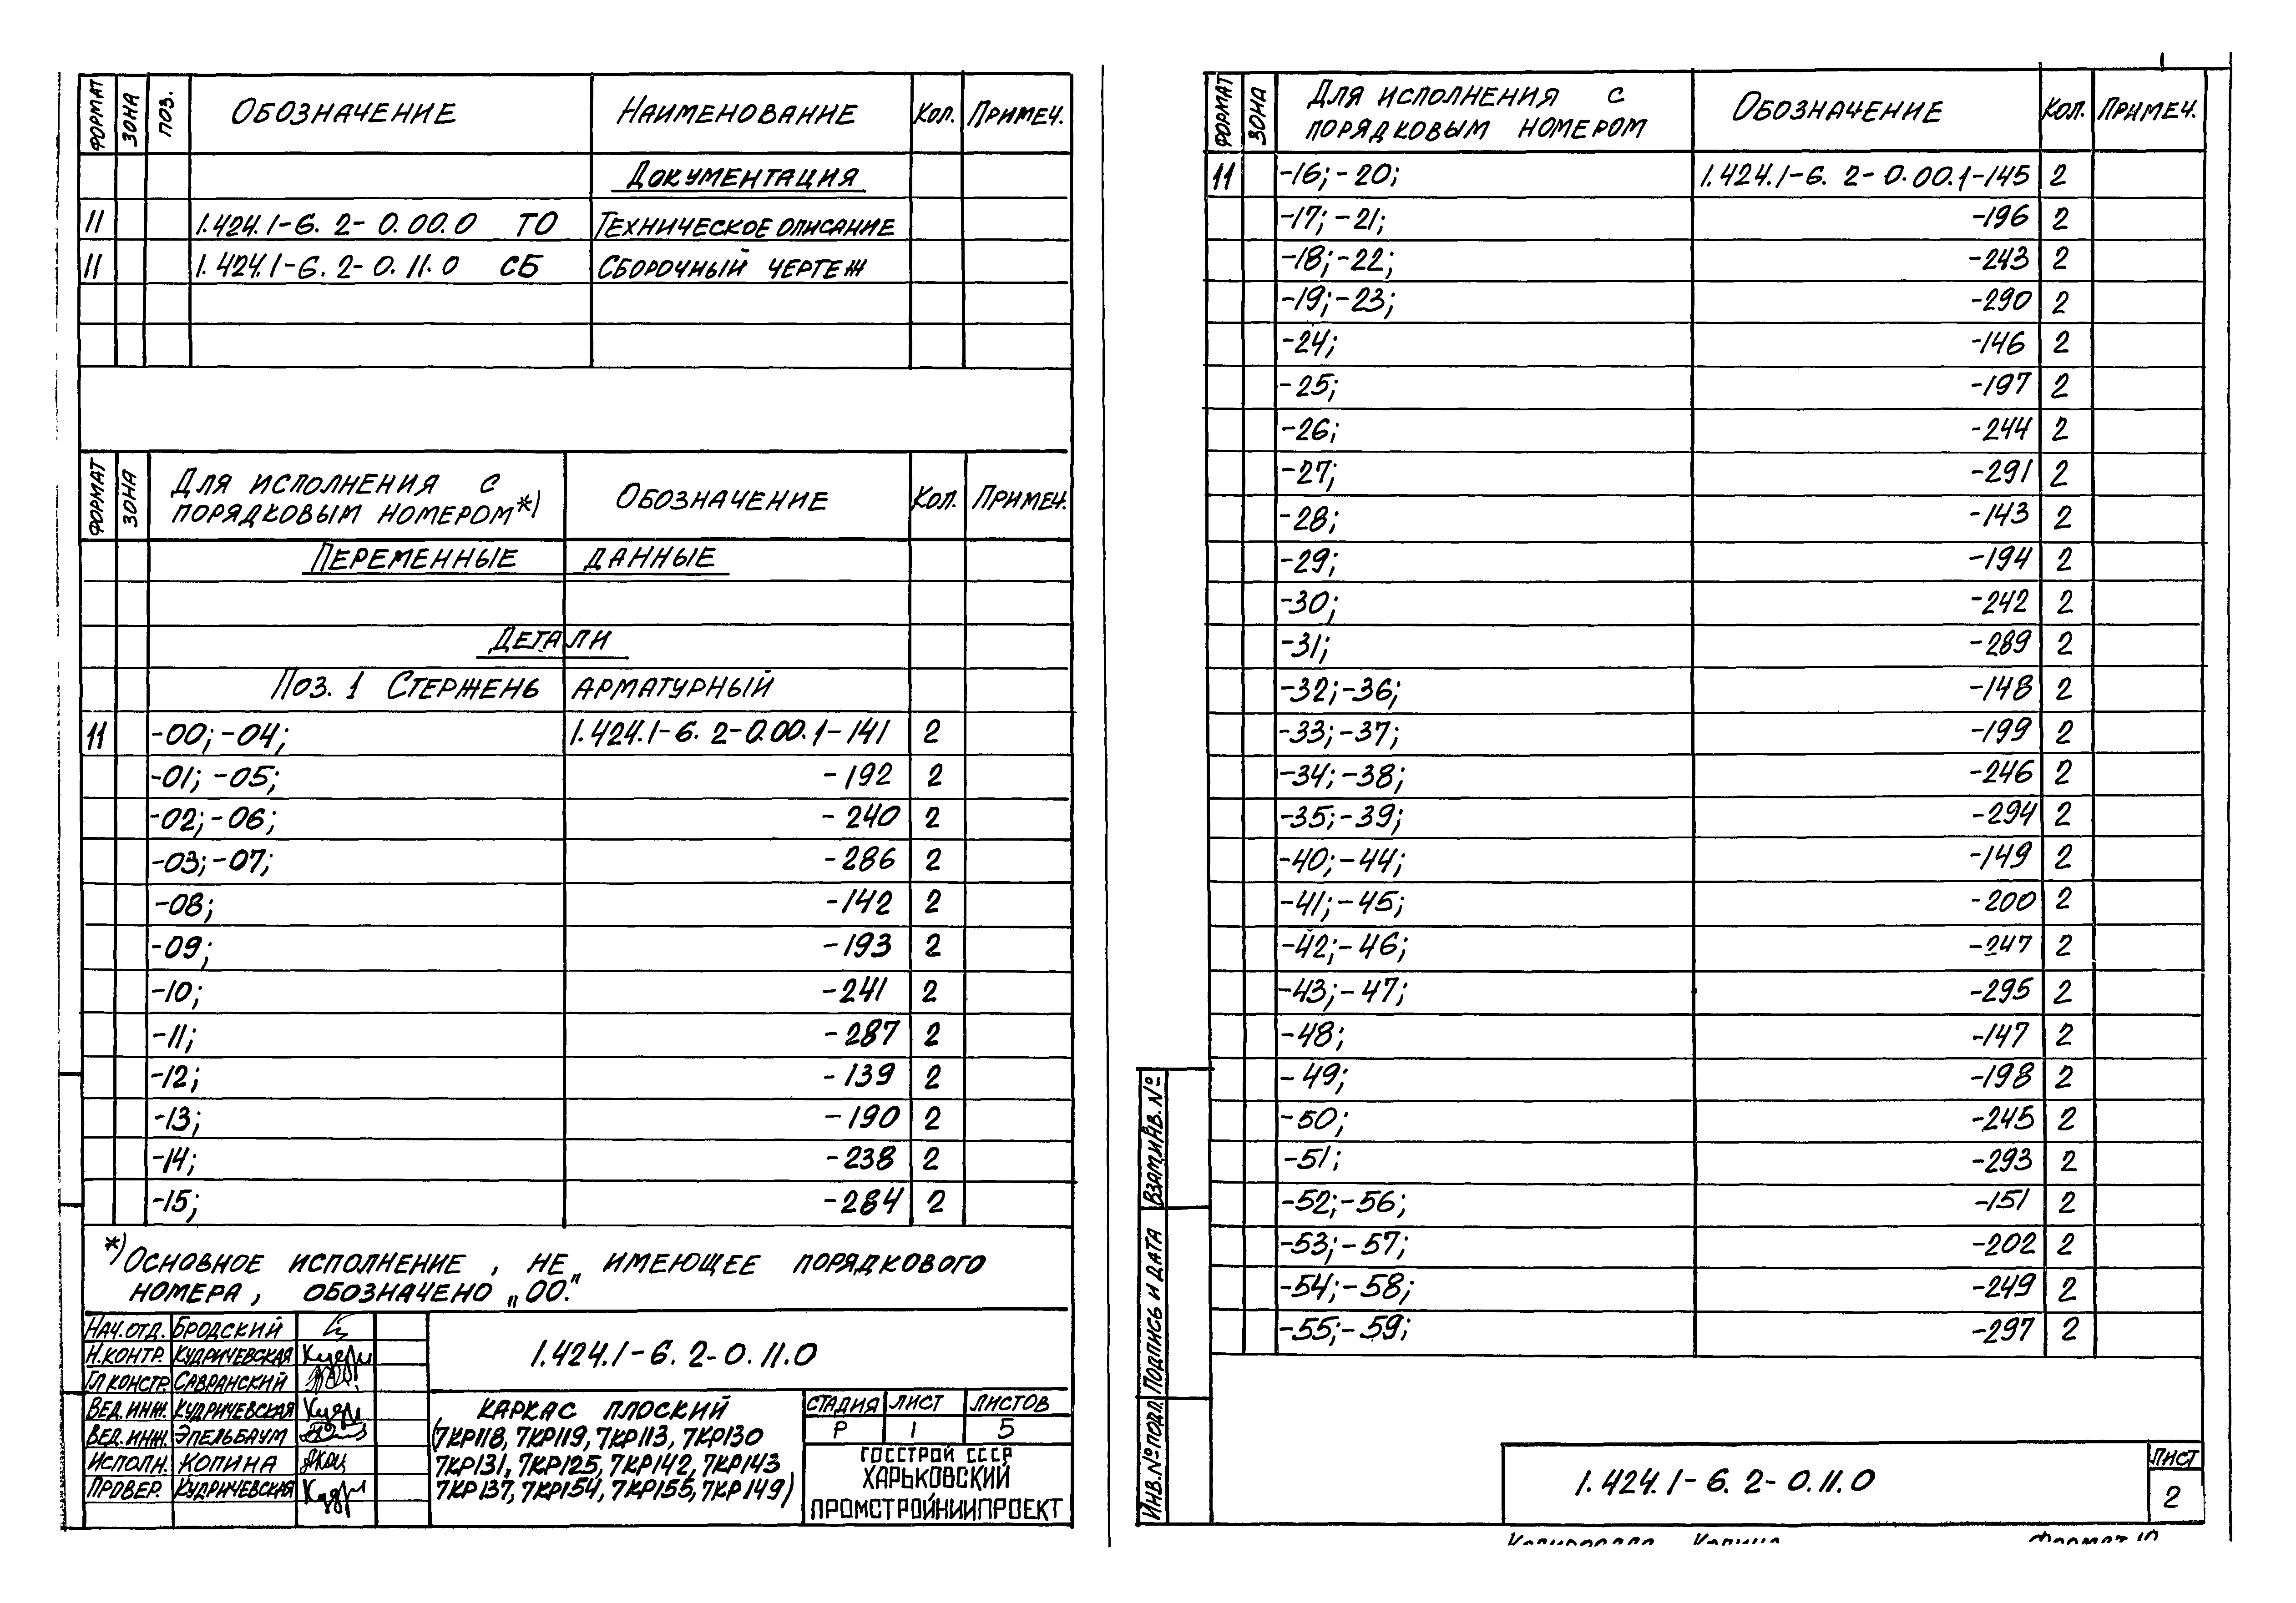 ФОРМАТ ЗОНА ПОЗ. ОБОЗНАЧЕНИЕ НАИМЕНОВАНИЕ КОЛ. ПРИМЕЧ.
ДОКУМЕНТАЦИЯ
11 1.424.1-6. 2-0.00.0 ТО ТЕХНИЧЕСКОЕ ОПИСАНИЕ
11 1.424.1-6. 2-0.11.0 СБ СБОРОЧНЫЙ ЧЕРТЕЖ
ФОРМАТ ЗОНА ДЛЯ ИСПОЛНЕНИЯ С ПОРЯДКОВЫМ НОМЕРОМ*) ОБОЗНАЧЕНИЕ КОЛ. ПРИМЕЧ.
ПЕРЕМЕННЫЕ ДАННЫЕ
ДЕТАЛИ
ПОЗ. 1 СТЕРЖЕНЬ АРМАТУРНЫЙ
11 -00; -04; 1.424.1-6. 2-0.00.1-141 2
-01; -05; -192 2
-02; -06; -240 2
-03; -07; -286 2
-08; -142 2
-09; -193 2
-10; -241 2
-11; -287 2
-12; -139 2
-13; -190 2
-14; -238 2
-15; -284 2
*) ОСНОВНОЕ ИСПОЛНЕНИЕ, НЕ ИМЕЮЩЕЕ ПОРЯДКОВОГО
НОМЕРА, ОБОЗНАЧЕНО „00."
НАЧ.ОТД. БРОДСКИЙ
Н.КОНТР. КУДРИЧЕВСКАЯ
ГЛ.КОНСТР. САВРАНСКИЙ
ВЕД.ИНЖ. КУДРИЧЕВСКАЯ
ВЕД.ИНЖ. ЭПЕЛЬБАУМ
ИСПОЛН. КОПИНА
ПРОВЕР. КУДРИЧЕВСКАЯ
1.424.1-6. 2-0.11.0
КАРКАС ПЛОСКИЙ
(7КР118, 7КР119, 7КР113, 7КР130
7КР131, 7КР125, 7КР142, 7КР143
7КР137, 7КР154, 7КР155, 7КР149)
СТАДИЯ ЛИСТ ЛИСТОВ
Р 1 5
ГОССТРОЙ СССР
ХАРЬКОВСКИЙ
ПРОМСТРОЙНИИПРОЕКТ
ФОРМАТ ЗОНА ДЛЯ ИСПОЛНЕНИЯ С ПОРЯДКОВЫМ НОМЕРОМ ОБОЗНАЧЕНИЕ КОЛ. ПРИМЕЧ.
11 -16; -20; 1.424.1-6. 2-0.00.1-145 2
-17; -21; -196 2
-18; -22; -243 2
-19; -23; -290 2
-24; -146 2
-25; -197 2
-26; -244 2
-27; -291 2
-28; -143 2
-29; -194 2
-30; -242 2
-31; -289 2
-32; -36; -148 2
-33; -37; -199 2
-34; -38; -246 2
-35; -39; -294 2
-40; -44; -149 2
-41; -45; -200 2
-42; -46; -247 2
-43; -47; -295 2
-48; -147 2
-49; -198 2
-50; -245 2
-51; -293 2
-52; -56; -151 2
-53; -57; -202 2
-54; -58; -249 2
-55; -59; -297 2
ИНВ.№ПОДЛ. ПОДПИСЬ И ДАТА ВЗАМ.ИНВ.№
1.424.1-6. 2-0.11.0
ЛИСТ
2